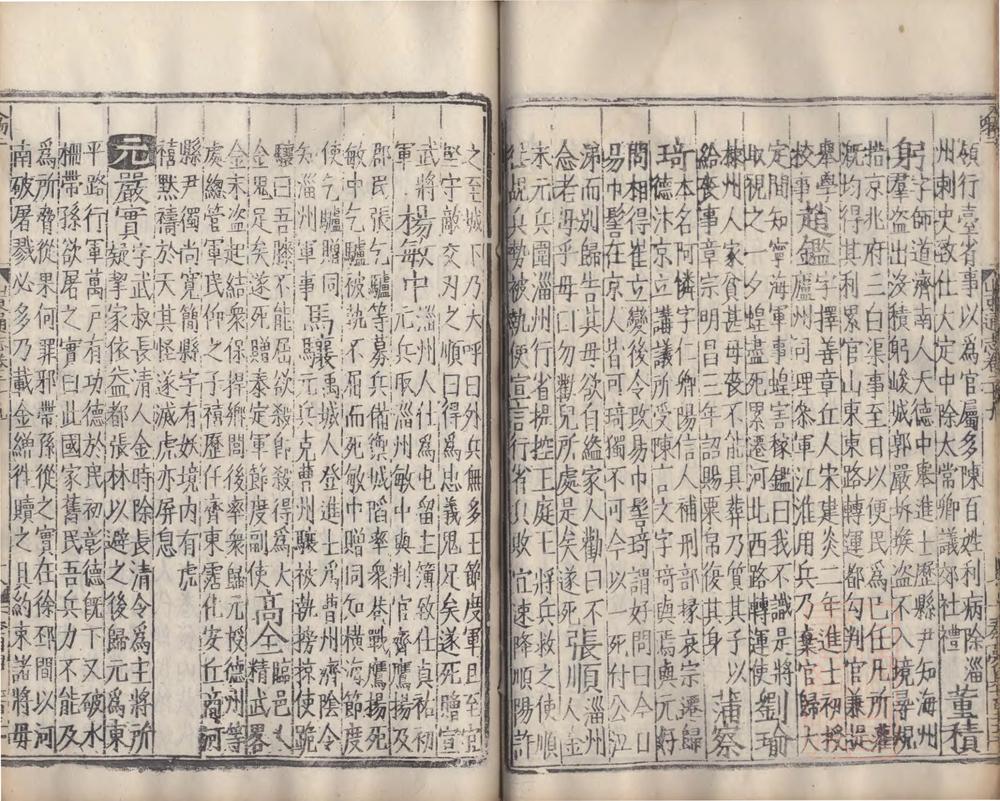 領行臺省事以為官屬多陳百姓利病除淄
州刺史致仕大定中除太常卿議郊社禮董積
躬字師道濟南人天德中舉進士歷縣尹知海州
躬羣盜出沒積躬峻城郭嚴坼堠盜不入境尋規
措京兆府三白渠事至日以便民為已任凡所灌
溉均得其利累官山東東路轉運都勾判官兼提
舉學校事趙鑑字擇善章丘人宋建炎二年進士初授
定間知寧海軍事蝗害稼鑑曰我不識是將
取視之一夕蝗盡死累遷河北西路轉運使劉瑜
棣州人家貧甚母喪不能具葬乃質其子以
給喪事章宗明昌三年詔賜粟帛復其身蒲察
琦本名阿憐字仁卿陽信人補刑部掾哀宗遷歸
德汴京立講議所受陳言文字琦與焉與元好
問相得崔立變後令改易巾髻琦謂好問曰今日
易巾髻在京人皆可琦獨不可今以一死付公
涕而別歸告其母欲自縊家人勸曰不
念老母乎母曰勿勸兒所處是矣遂死張順淄州
人金末元兵圍淄州行省提控王庭玉將兵救之使順
往覘兵勢被執便宣言行省引敗宜速降順陽許
之至城下乃大呼曰外兵無多王節度軍且至宜
堅守敵交刃之順曰得為忠義鬼足矣遂死贈宣
武將軍楊敏中淄州人仕為屯留主簿致仕貞祐初
元兵取淄州敏中與判官齊鷹揚及
郡民張乞驢等募兵備禦城陷率衆巷戰鷹揚死
敏中乞驢被執不屈而死敏中贈同知橫海節度
使乞驢贈同知淄州軍事馬驤禹城人登進士為曹州濟陰令
元兵克曹州驤被執搒掠使跪
驤曰吾膝不能屈欲殺即殺得為大金鬼足矣遂死贈泰定軍節度副使高全臨邑人精武畧
金末盜起結衆保捍鄉閭後率衆歸元授德州等
處總管軍民仰之子禧歷任齊東霑化安丘商河
縣尹獨尚寬簡縣宇有妖境內有虎
禧默禱於天其怪遂滅虎亦屏息
元嚴實字武叔長清人金時除長清令為主將所
疑挈家依益都張林以避之後歸元為東
平路行軍萬戶有功德於民初彰德既下又破水
柵帶孫欲屠之實曰此國家舊民吾兵力不能及
為所脅從果何罪邪帶孫從之實在徐邳間以河
南破屠戮必多乃載金繒往贖之且約束諸將毋